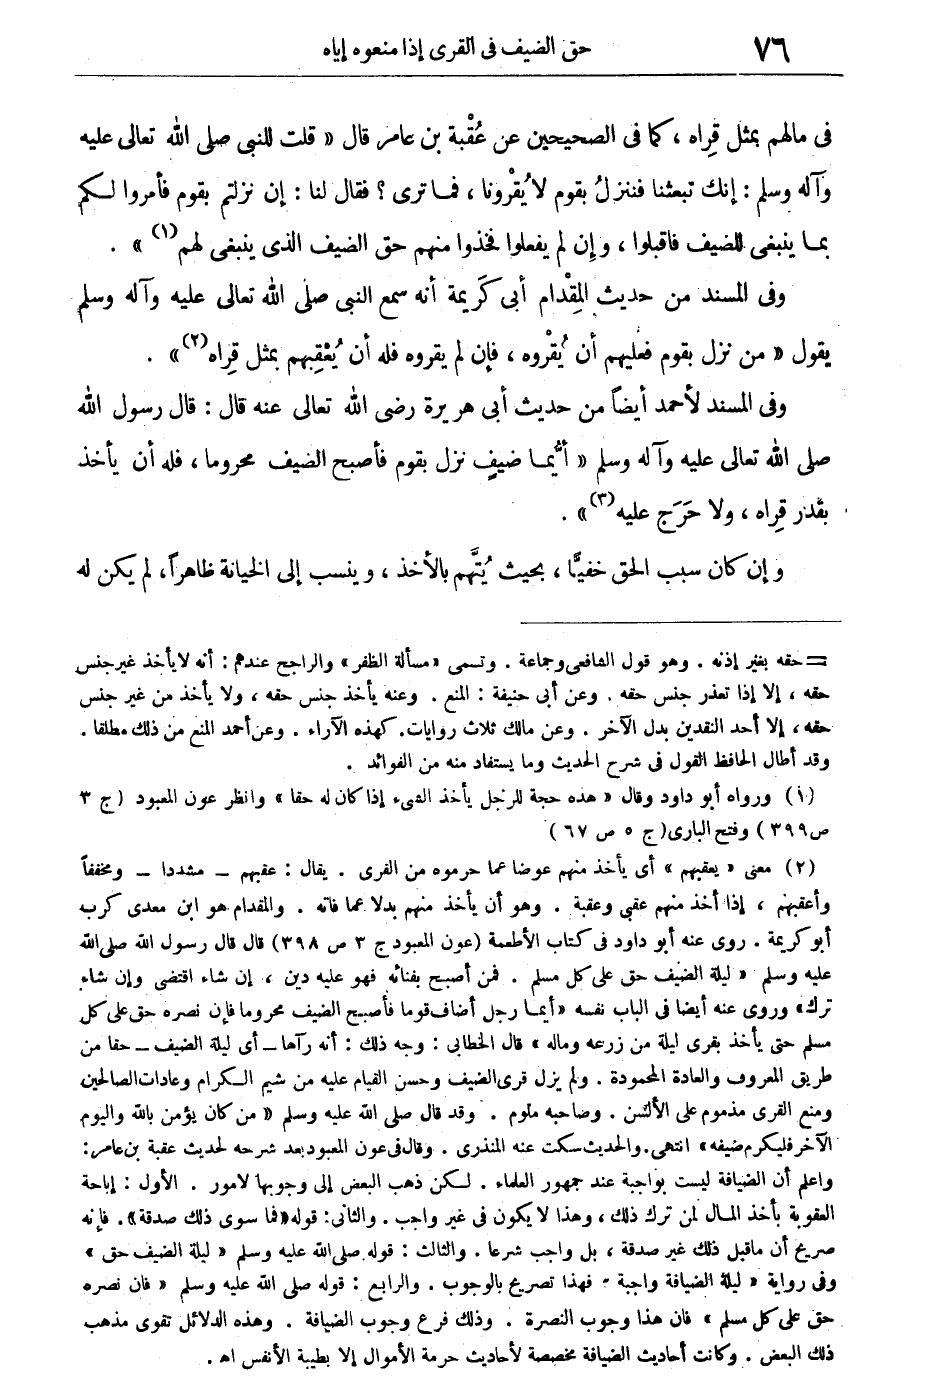 ٧٦
حق الضيف فى القرى إذا منعوه إياه
فى مالهم بمثل قِراه ، كما فى الصحيحين عن عُقْبة بن عامر قال « قلت للنبى صلى الله تعالى عليه
وآله وسلم : إنك تبعثنا فننزلُ بقوم لا يُقْرونا ، فما ترى ؟ فقال لنا : إن نزلتم بقوم فأمروا لكم
بما ينبغى للضيف فاقبلوا ، وإن لم يفعلوا فخذوا منهم حق الضيف الذى ينبغى لهم(١) » .
وفى المسند من حديث المِقْدام أبى كَريمة أنه سمع النبى صلى الله تعالى عليه وآله وسلم
يقول « من نزل بقوم فعليهم أن يُقْروه ، فإن لم يقروه فله أن يُعْقِبهم بمثل قِراه(٢) » .
وفى المسند لأحمد أيضاً من حديث أبى هريرة رضى الله تعالى عنه قال : قال رسول الله
صلى الله تعالى عليه وآله وسلم « أيُّما ضيفٍ نزل بقوم فأصبح الضيف محروما ، فله أن يأخذ
بقَدر قِراه ، ولا حَرَج عليه(٣) » .
وإن كان سبب الحق خفيًّا ، بحيث يُتَّهم بالأخذ ، وينسب إلى الخيانة ظاهراً، لم يكن له
= حقه بغير إذنه . وهو قول الشافعى وجماعة . وتسمى «مسألة الظفر» والراجح عندهم : أنه لا يأخذ غير جنس
حقه ، إلا إذا تعذر جنس حقه . وعن أبى حنيفة : المنع . وعنه يأخذ جنس حقه ، ولا يأخذ من غير جنس
حقه ، إلا أحد النقدين بدل الآخر . وعن مالك ثلاث روايات. كهذه الآراء . وعن أحمد المنع من ذلك مطلقا .
وقد أطال الحافظ القول فى شرح الحديث وما يستفاد منه من الفوائد .
(١) ورواه أبو داود وقال « هذه حجة للرجل يأخذ الشىء إذا كان له حقا » وانظر عون المعبود (ج ٣
ص ٣٩٩) وفتح البارى (ج ٥ ص ٦٧)
(٢) معنى « يعقبهم » أى يأخذ منهم عوضا عما حرموه من القرى . يقال : عقبهم ــ مشددا ــ ومخففاً
وأعقبهم ، إذا أخذ منهم عقبى وعقبة . وهو أن يأخذ منهم بدلا عما فاته . والمقدام هو ابن معدى كرب
أبو كريمة . روى عنه أبو داود فى كتاب الأطعمة (عون المعبود ج ٣ ص ٣٩٨) قال قال رسول الله صلى الله
عليه وسلم « ليلة الضيف حق على كل مسلم . فمن أصبح بفنائه فهو عليه دين ، إن شاء اقتضى وإن شاء
ترك» وروى عنه أيضا فى الباب نفسه «أيما رجل أضاف قوما فأصبح الضيف محروما فإن نصره حق على كل
مسلم حتى يأخذ بقرى ليلة من زرعه وماله » قال الخطابى : وجه ذلك : أنه رآها ــ أى ليلة الضيف ــ حقا من
طريق المعروف والعادة المحمودة . ولم يزل قرى الضيف وحسن القيام عليه من شيم الكرام وعادات الصالحين
ومنع القرى مذموم على الألسن . وصاحبه ملوم . وقد قال صلى الله عليه وسلم « من كان يؤمن بالله واليوم
الآخر فليكرم ضيفه» انتهى. والحديث سكت عنه المنذرى . وقال فى عون المعبود بعد شرحه لحديث عقبة بن عامر :
واعلم أن الضيافة ليست بواجبة عند جمهور العلماء . لكن ذهب البعض إلى وجوبها لامور . الأول : إباحة
العقوبة بأخذ المال لمن ترك ذلك ، وهذا لا يكون فى غير واجب . والثانى : قوله «فما سوى ذلك صدقة» . فإنه
صريح أن ماقبل ذلك غير صدقة ، بل واجب شرعا . والثالث : قوله صلى الله عليه وسلم « ليلة الضيف حق »
وفى رواية « ليلة الضيافة واجبة » فهذا تصريح بالوجوب . والرابع : قوله صلى الله عليه وسلم « فان نصره
حق على كل مسلم » فان هذا وجوب النصرة . وذلك فرع وجوب الضيافة . وهذه الدلائل تقوى مذهب
ذلك البعض . وكانت أحاديث الضيافة مخصصة لأحاديث حرمة الأموال إلا بطيبة الأنفس اه .